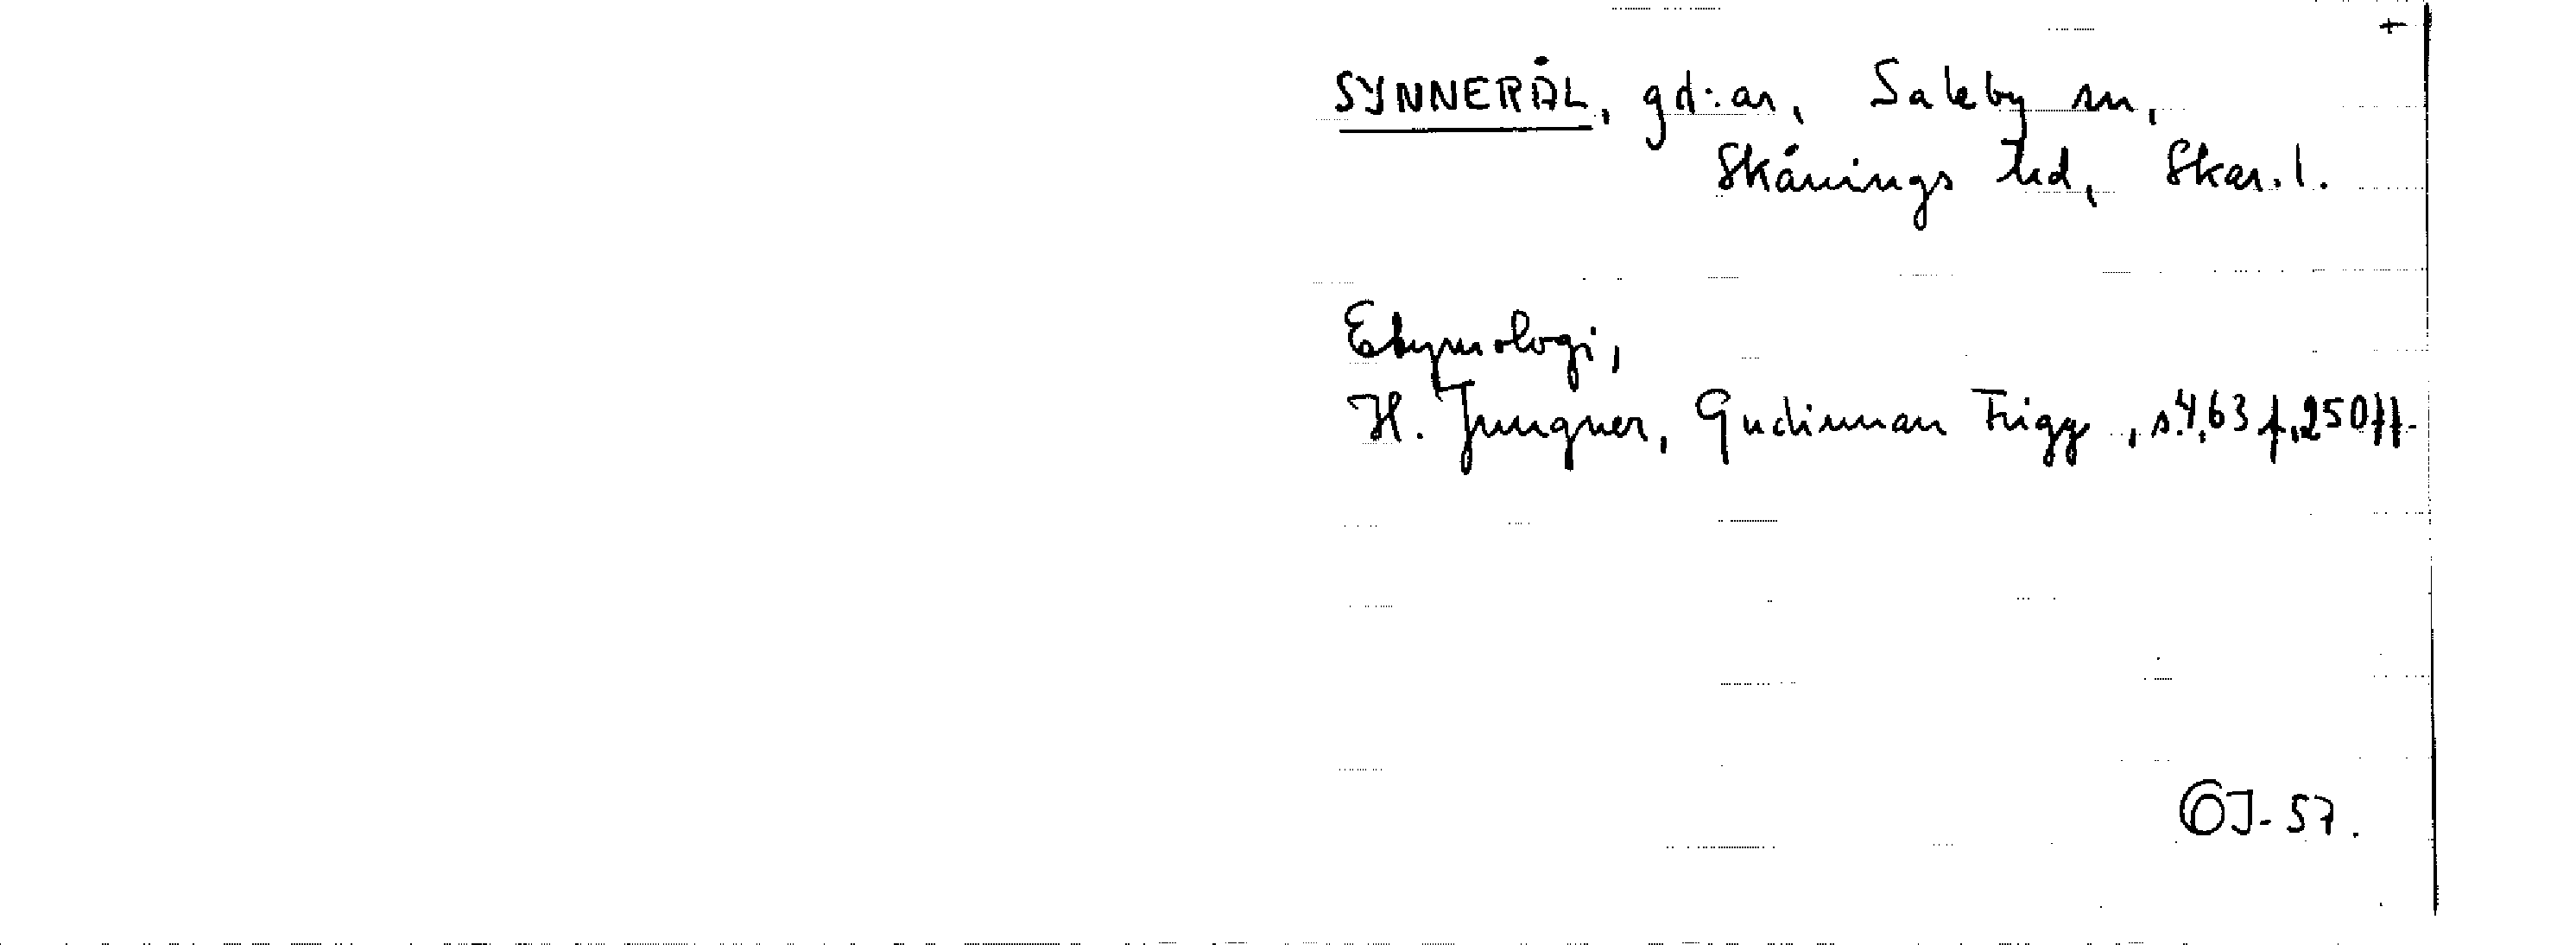 +
SYNNERÅL, gd:ar, Saleby sn,
Skånings hd, Skar. l.
Etymologi,
H. Jungner, Gudinnan Frigg, s. 4, 63 f, 250 ff.